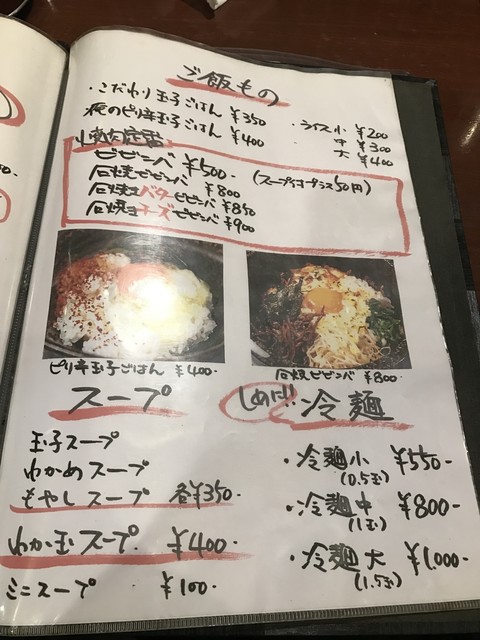 ご飯もの
・こだわり玉子ごはん ¥350
夜のピリ辛玉子ごはん ¥400
・ライス小 ¥200
中 ¥300
大 ¥400
焼肉定番
ビビンバ ¥500-
(スープ付プラス50円)
石焼ビビンバ ¥800
石焼きバタービビンバ ¥850
石焼きチーズビビンバ ¥900
ピリ辛玉子ごはん ¥400-
石焼ビビンバ ¥800-
スープ
玉子スープ
わかめスープ
もやしスープ 各¥350-
わか玉スープ ¥400-
ミニスープ ¥100-
しめは!! 冷麺
・冷麺小 ¥550-
(0.5玉)
・冷麺中 ¥800-
(1玉)
・冷麺大 ¥1,000-
(1.5玉)